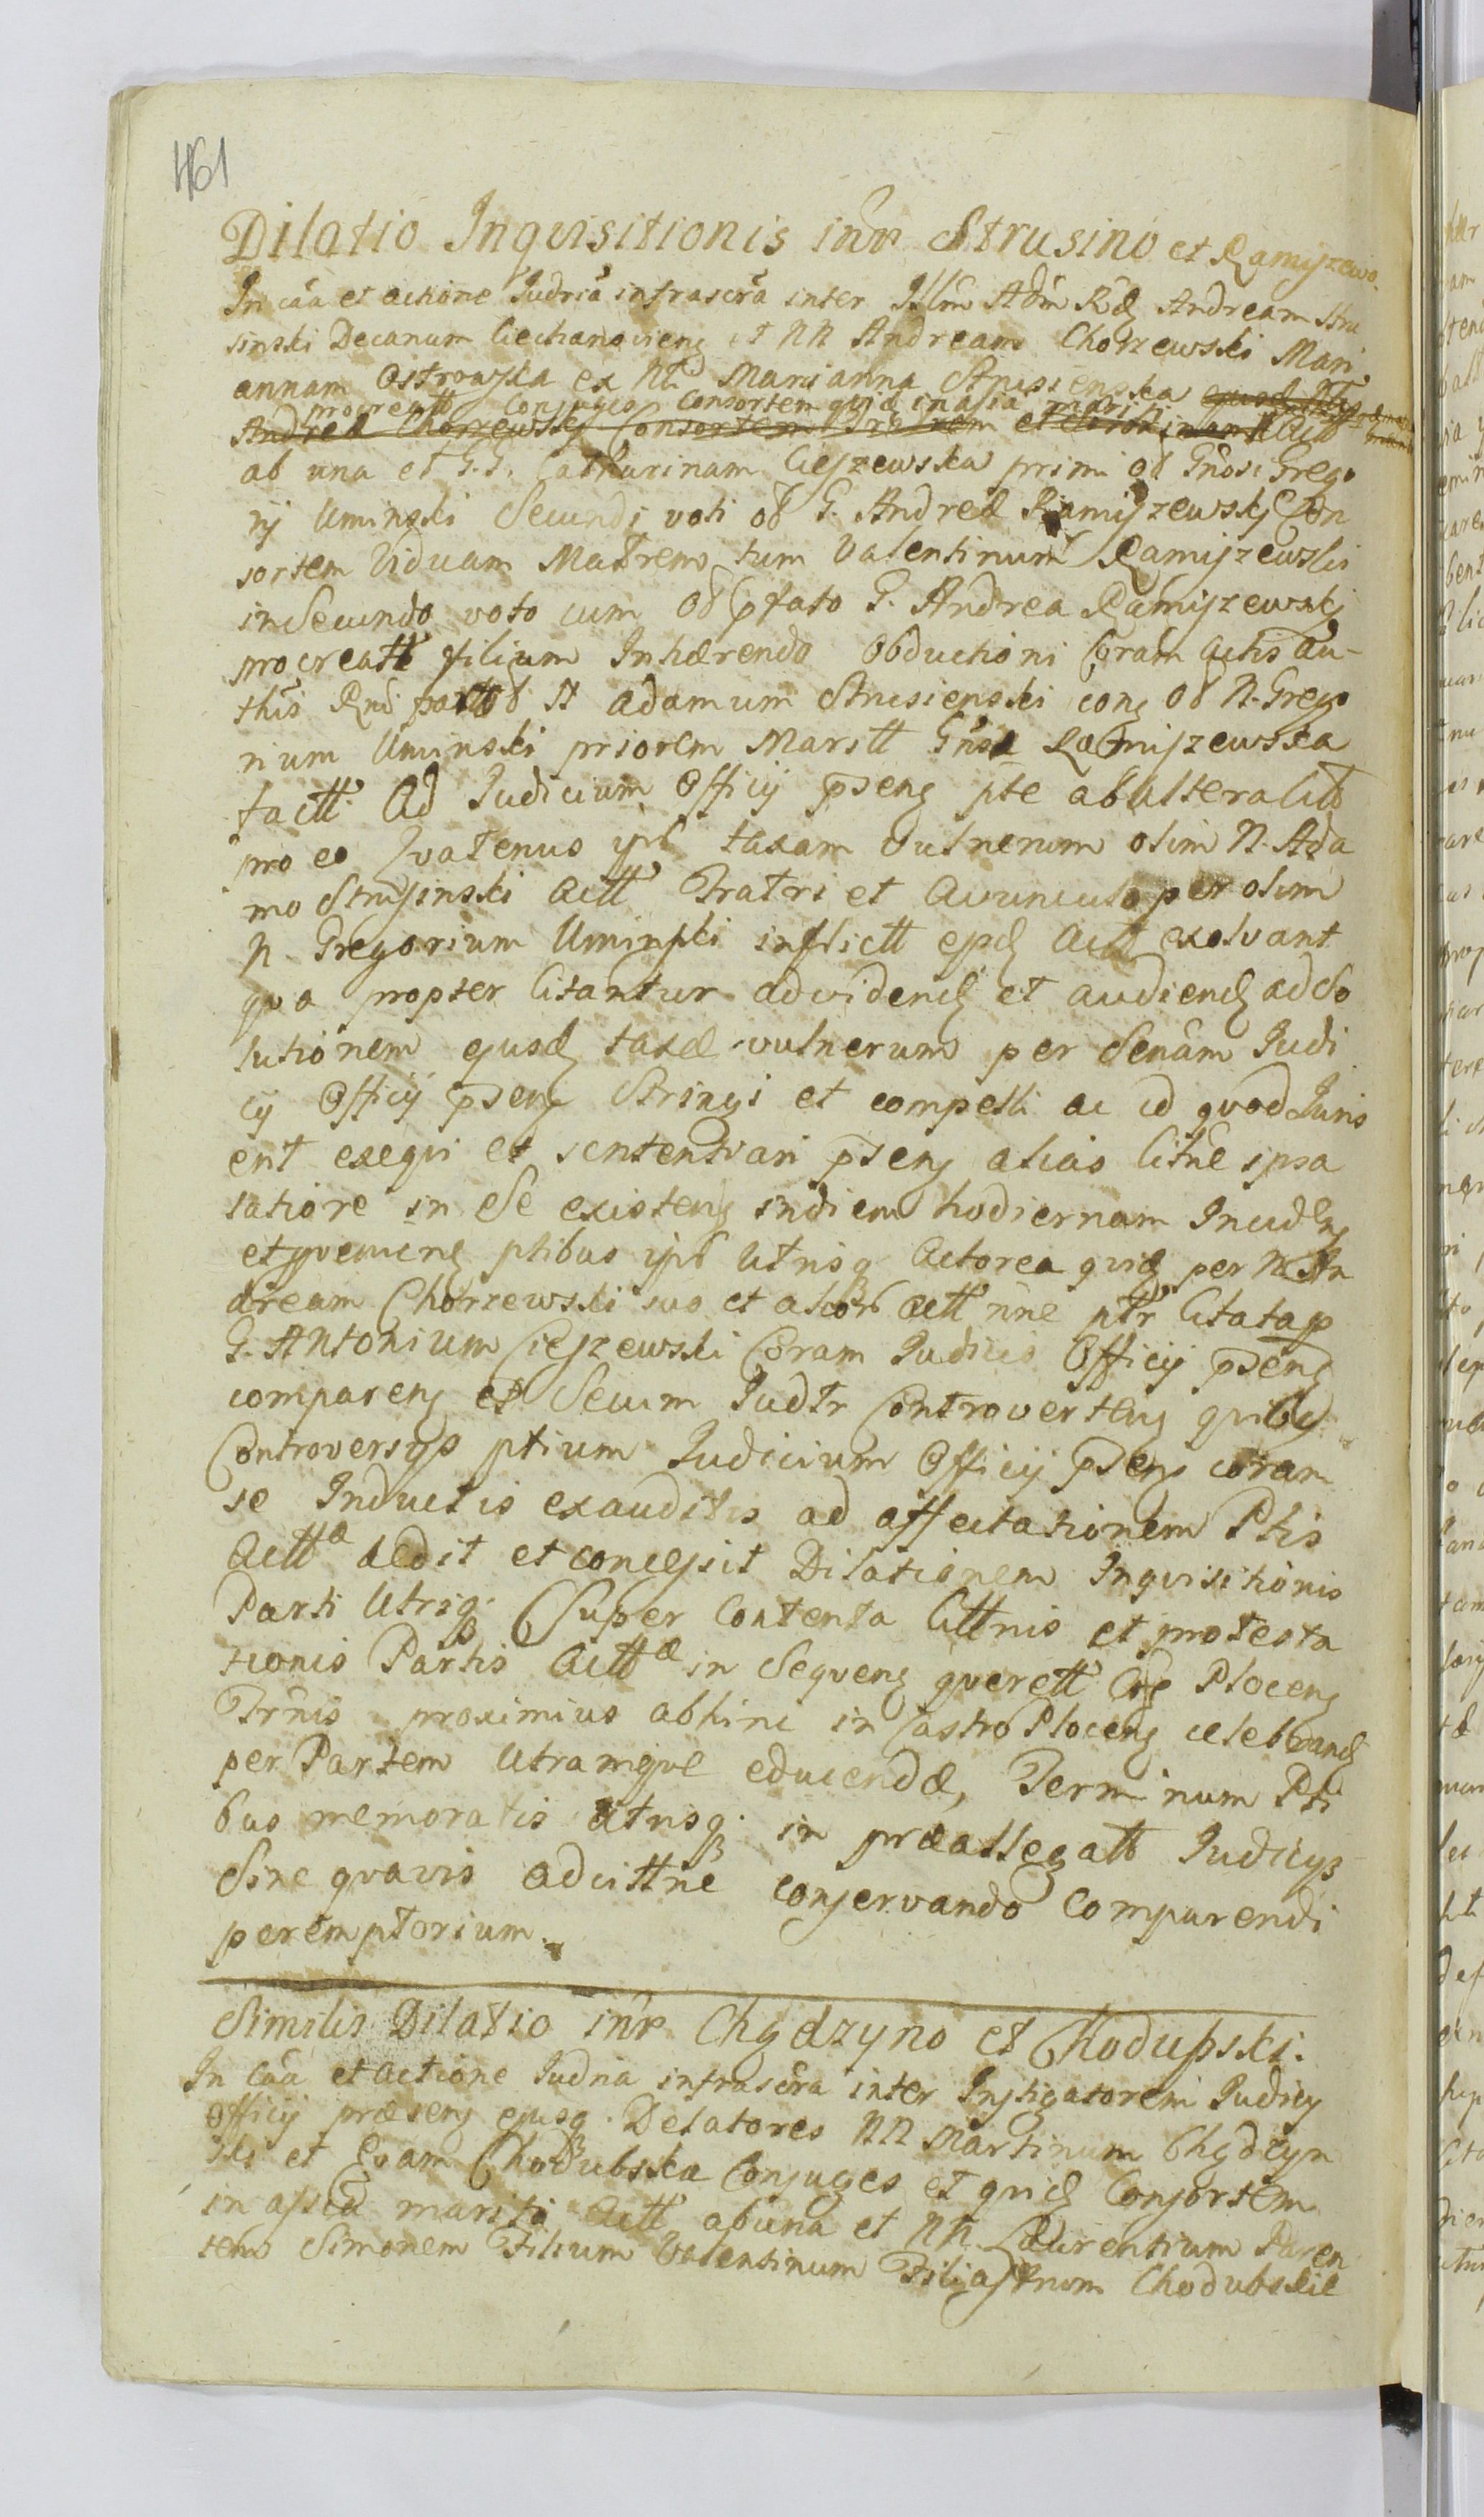 461
Dilatio Inquisitionis intr Strusino et Ramijzewo.
In cãa et actione Iudriã infrascrã inter Illm Adm Rd Andream Stru
sinski Decanum Ciechanovieng et NN Andream Chorzewski Mari
annam Ostrowska ex Nli Marianna Strusienska
procreatt Conjuges Consortem quid in asia mariti
Andrea Chorzewski Consortem Actt
ab una et G.G. Catharinam Ciejzewska primi ol Gnosi Grego
rij Uminski Secundi voti ol G. Andreæ Ramijzewskj Con
sortem Viduam Matrem tum Valentinum Ramijzewski
in Secundo voto cum ol pfato G. Andrea Ramijzewskj
procreatt filium Inhærendo Obductioni Coram Actis au-
this Rnd ol N Adamum Strusienski cong ol N. Grego
rium Uminski priorem Maritt Gnsæ Ramijzewska
factt Ad Judicium Officij pseng pte ab altera Citt
pro eo Qvatenus ipsi taxam Vulnerum olim N. Ada
mo Strusinski Actt Fratri et Avunculo per olim
N. Gregorium Uminski inflictt ejsd Actt exolvant
qva propter Citantur ad videnđ et audienđ ad So
lutionem ejusđ taxæ vulnerum per Senãm Judi
cij Officij pseng Stringi et compelli ac id qvod Juris
erit exeqvi et sententiari pseng alias Citñe ipsa
latiore in Se existeng in diem hodiernam Inciđeng
et pveniene ptibus ipsis Utrisq Actorea quiđ per N. An
dream Chorzewski suo et alior Actt nne ptr Citata p
G. Antonium Ciejzewski Coram Judicio Officij pseng
compareng et Secum Judtr Controverteng quibus
Controversijs ptium Judicium Officij pseng coram
se Inductis exauditis ad affectationem Ptis
Acttæ dedit et concessit Dilationem Inquisitionis
Parti Utriq. Super Contenta Cittnis et protesta
tionis Partis Acttæ in Seqveng qverett Ploceng
Trnis proximius abhinc in Castro Ploceng celebranđ
per Partem Utramqve educendæ, Terminum Pti
bus memoratis Utrisq. in præallegatt Judicijs
Sine qvavis adcittne conservando Comparendi
peremptorium.
Similis Dilatio intr Chądzyno et Chodupski.
In Cãa et actione Judria infrascra inter Instigatorem Judicij
Officij præseng ejusq. Delatores NN Martinum Chądzyn
ski et Evam Chodubska Conjuges et quiđ Consortem
in assia mariti Actt ab una et NN. Laurentium Paren
tem Simonem Filium Valentinum Filiastrum Chodubskie